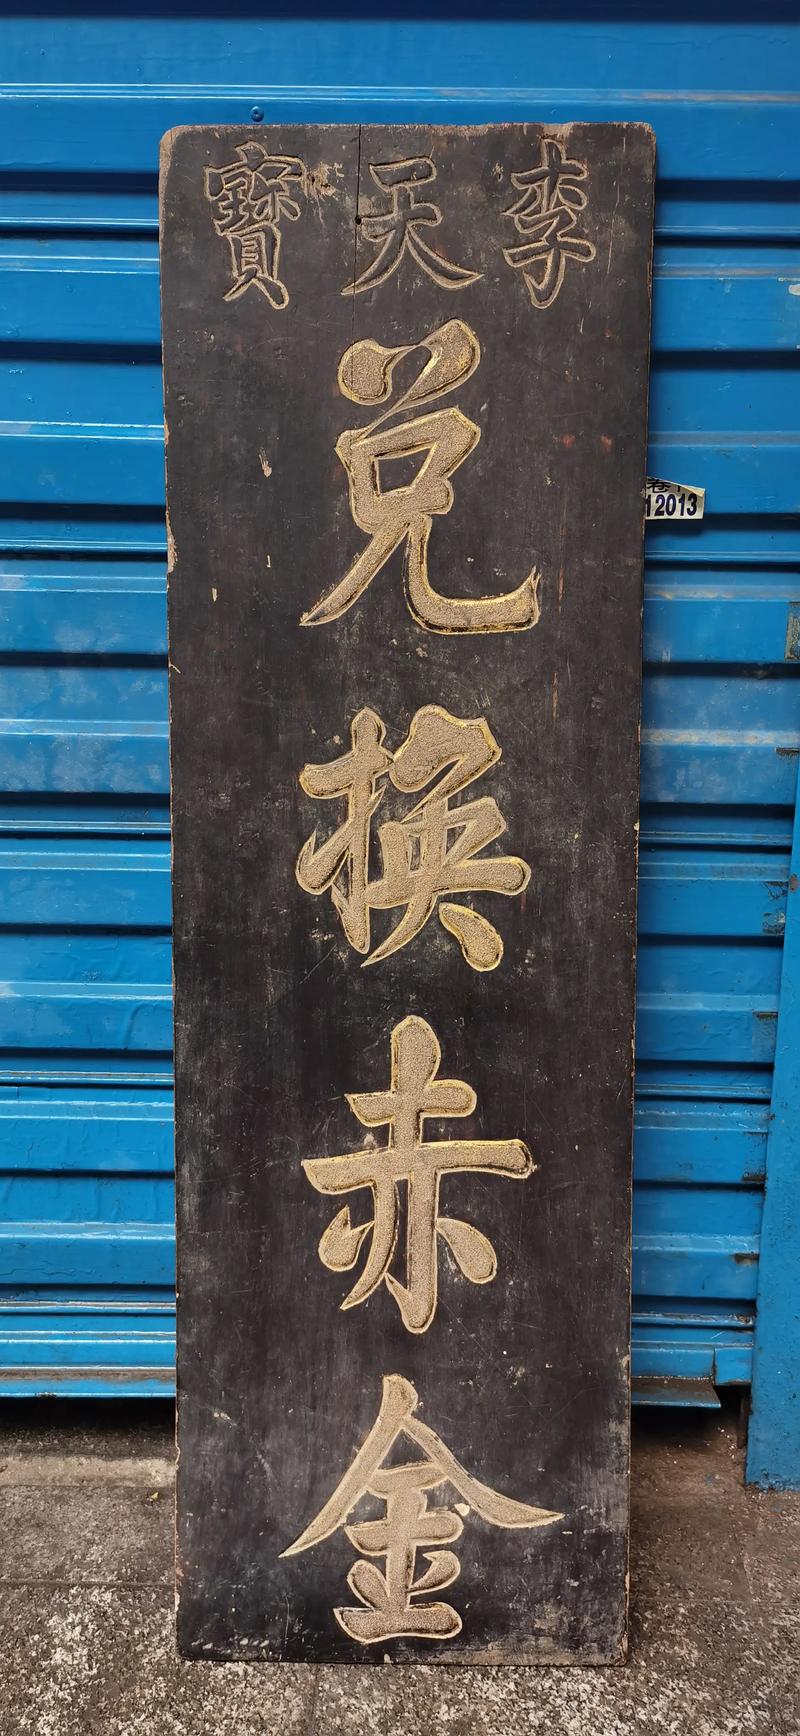 李天寶
兑換赤金
12013